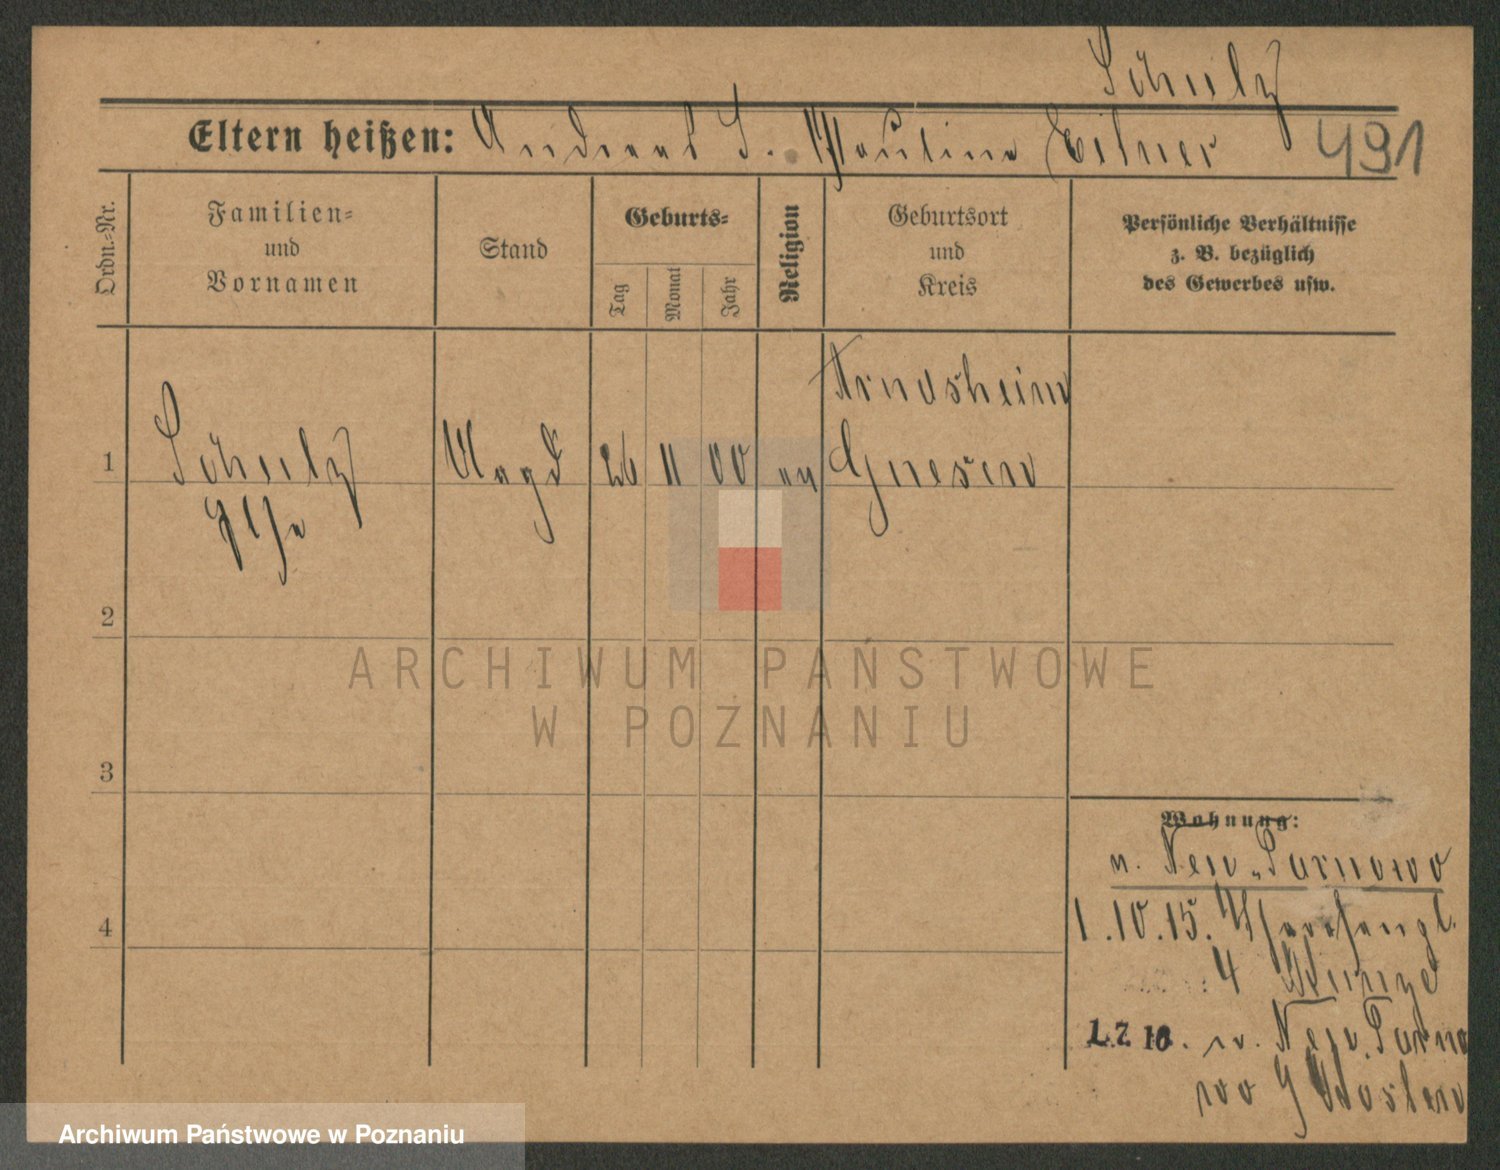 Schulz
Eltern heißen: Andreas S. Pauline Eitner 491
Ordn.=Nr.
Familien=
und
Vornamen
Stand
Geburts=
Tag
Monat
Jahr
Religion
Geburtsort
und
Kreis
Persönliche Verhältnisse
z. B. bezüglich
des Gewerbes usw.
1
Schulz
Magd
26 11 00
Arndsheim
Gnesen
2
3
4
Wohnung:
n. Neu-Tarnowo
1.10.15.
4
1.7.16. n. Neu-Tarno
wo
ARCHIWUM PAŃSTWOWE
W POZNANIU
Archiwum Państwowe w Poznaniu